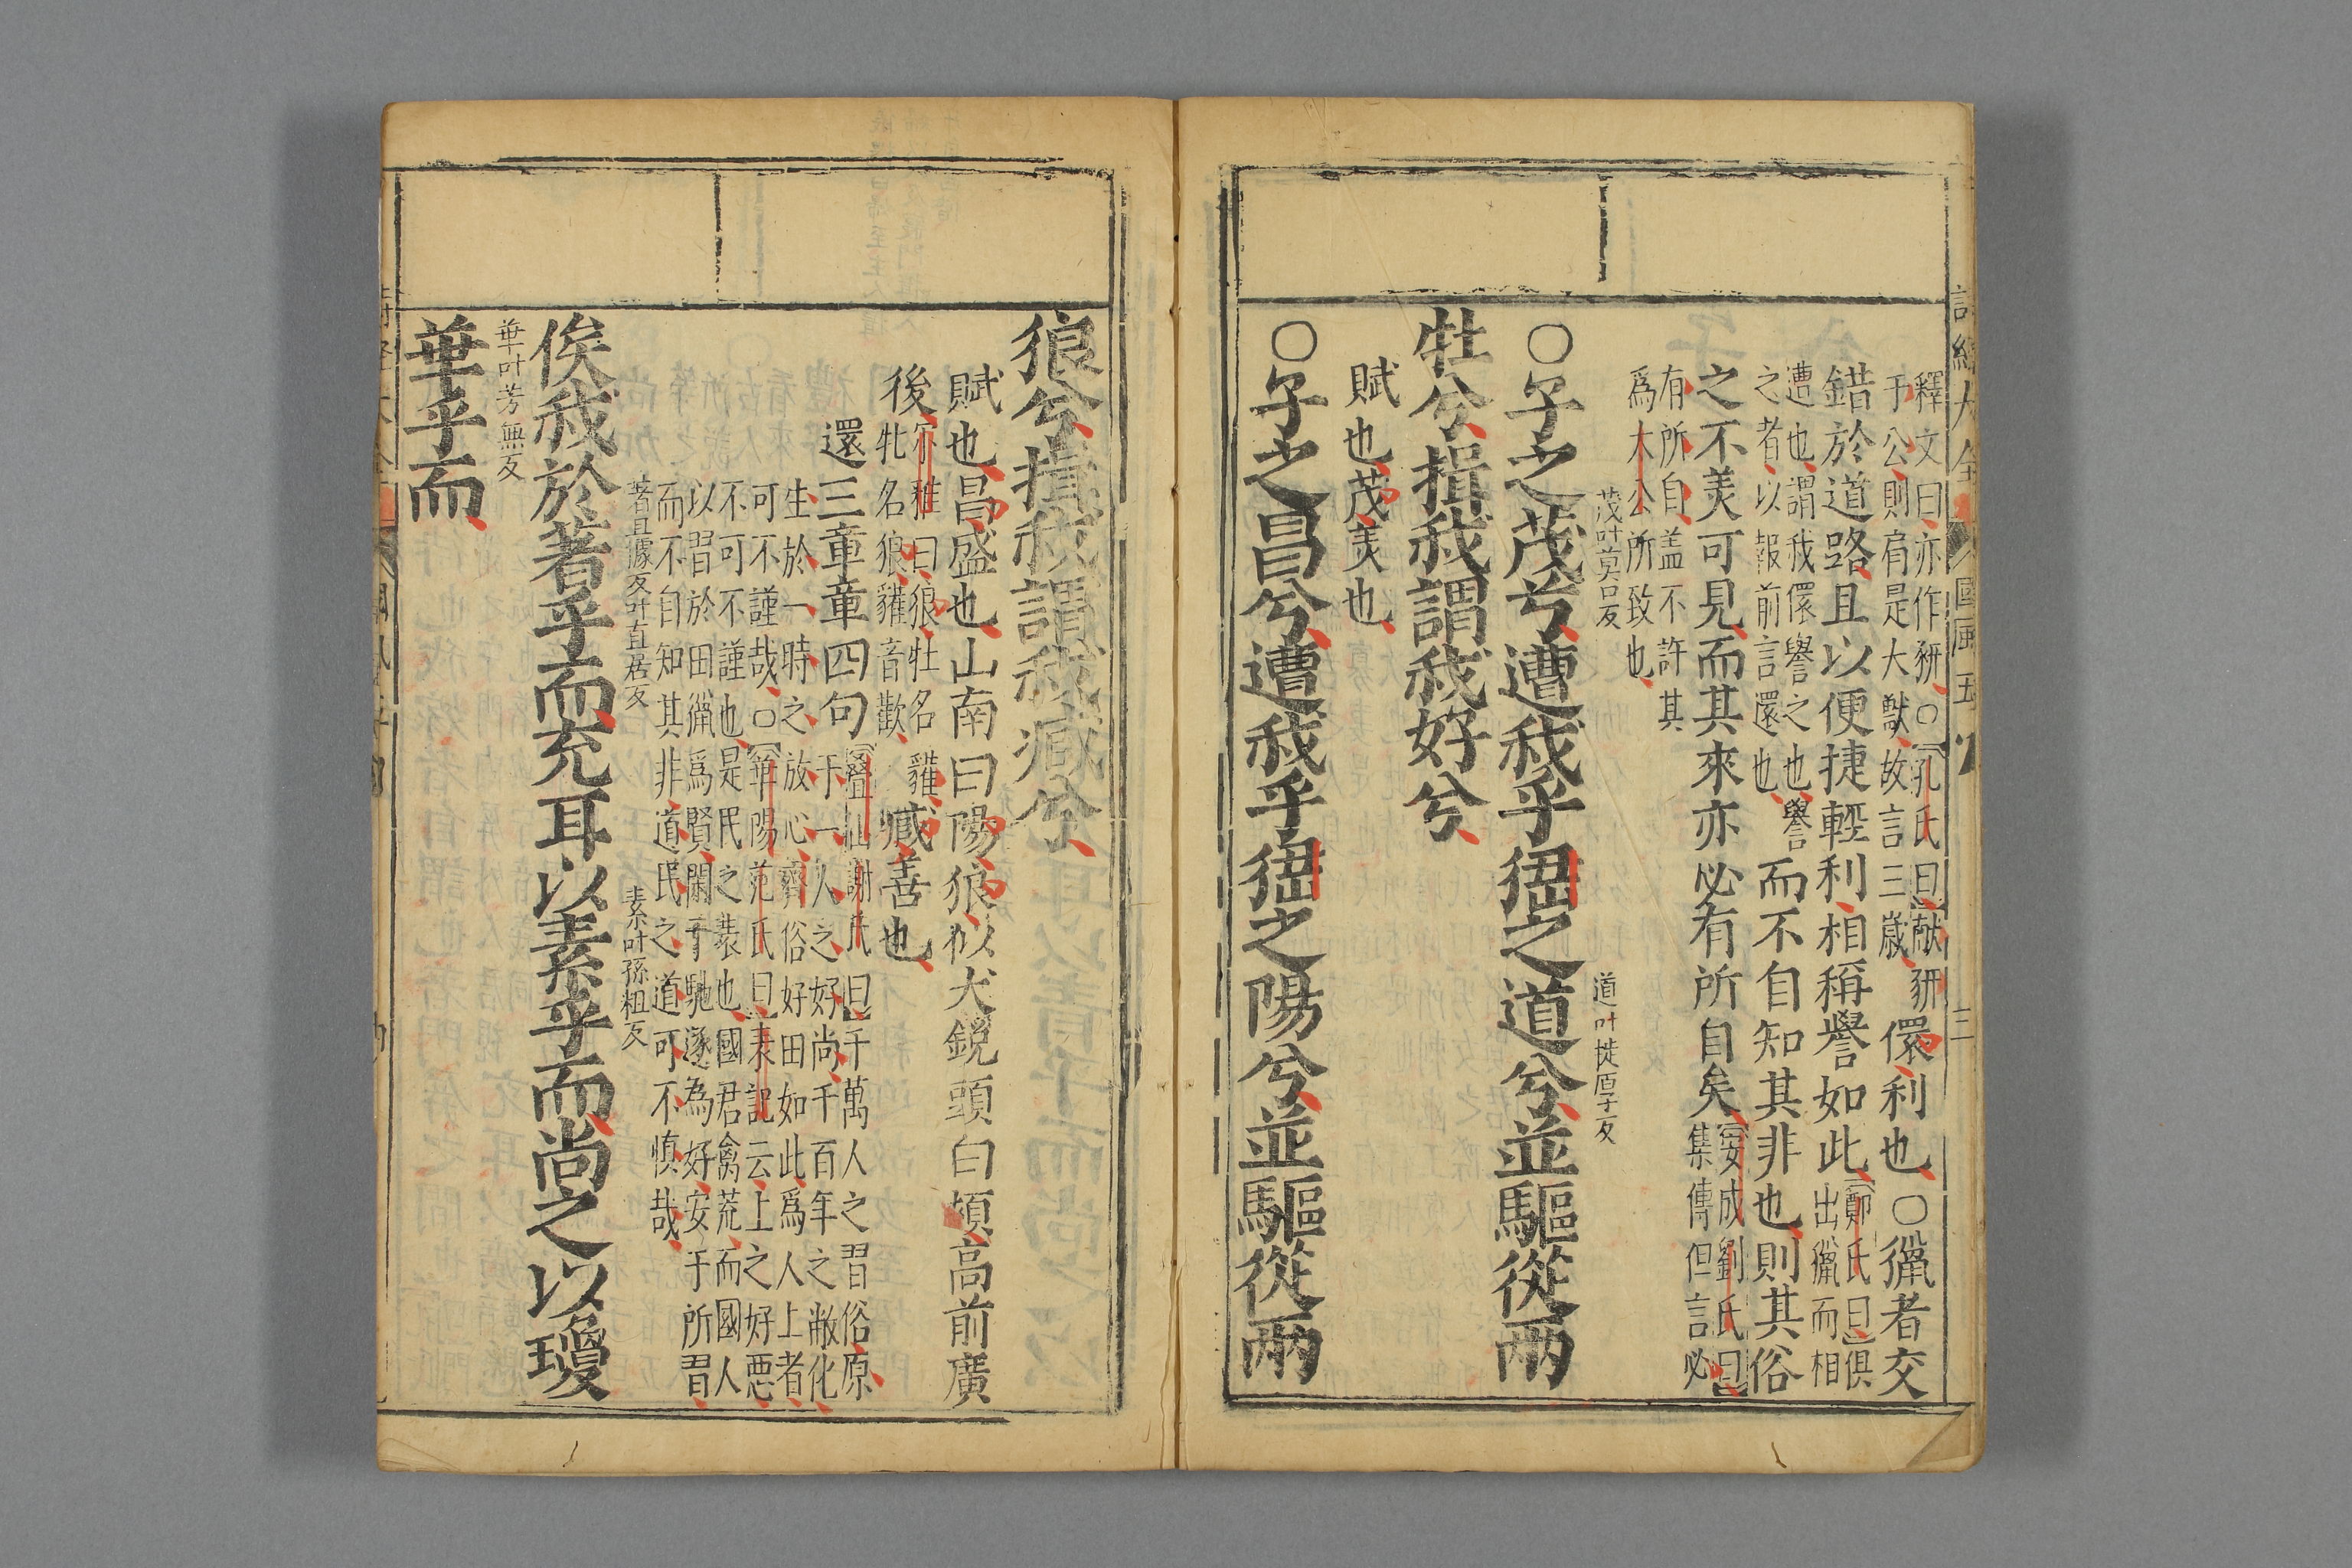 釋文曰亦作豣○孔氏曰献豜
于公則肩是大獸故言三歲
儇利也○獵者交
錯於道路且以便捷輕利相稱譽如此
鄭氏曰俱
出獵而相
遭也謂我儇譽之也譽
之者以報前言還也
而不自知其非也則其俗
之不美可見而其來亦必有所自矣
安成劉氏曰
集傳但言必
有所自盖不許其
爲太公所致也
茂叶莫口反
道叶徒厚反
○子之茂兮遭我乎峱之道兮並驅從兩
牡兮揖我謂我好兮
賦也茂美也
○子之昌兮遭我乎峱之陽兮並驅從兩
狼兮揖我謂我臧兮
賦也昌盛也山南曰陽狼似犬銳頭白頰高前廣
後
尔雅曰狼牡名貛
牝名狼貛音歡
臧善也
還三章章四句
疊山謝氏曰千萬人之習俗原
于一人之好尚千百年之敝化
生於一時之放心齊俗好田如此爲人上者
可不謹哉○華陽范氏曰表記云上之好惡
不可不謹也是民之表也國君禽荒而國人
以習於田獵爲賢閑于馳逐為好安于所習
而不自知其非道民之道可不慎哉
著直據反叶直居反
素叶孫租反
俟我於著乎而充耳以素乎而尚之以瓊
華叶芳無反
華乎而